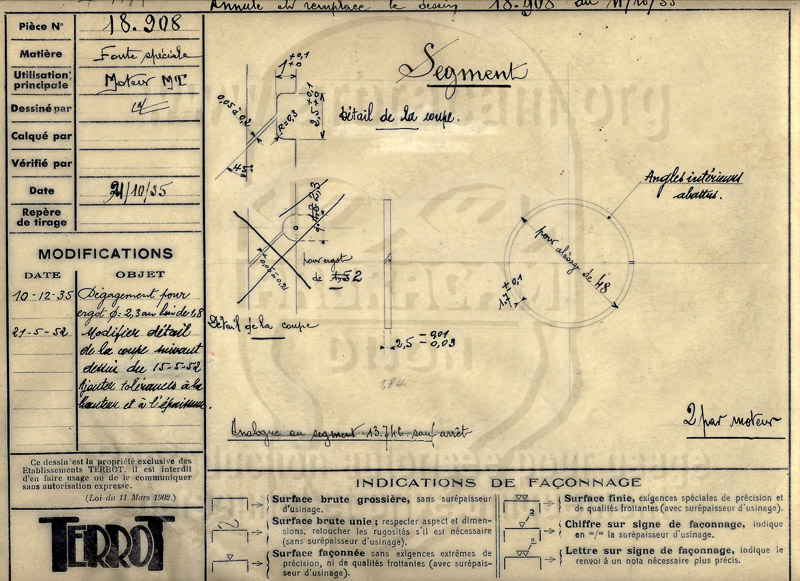 Annule et remplace le dessin 18.908 du 11/10/35
Pièce N° 18.908
Matière Fonte spéciale
Utilisation principale Moteur MT
Dessiné par
Calqué par
Vérifié par
Date 21/10/35
Repère de tirage
MODIFICATIONS
DATE OBJET
10-12-35 Dégagement pour
ergot Ø = 2,3 au lieu de 1,8
21-5-52 Modifier détail
de la coupe suivant
dessin du 15-5-52
Ajouter tolérances à la
hauteur et à l'épaisseur.
Ce dessin est la propriété exclusive des
Etablissements TERROT, il est interdit
d'en faire usage ou de le communiquer
sans autorisation expresse.
(Loi du 11 Mars 1902.)
TERROT
Segment
1 +0,1 +0
2,5 +0,1 +0
0,05 à 0,2
R=0,3
45°
Détail de la coupe.
2,3
0,05 à 0,2
pour ergot
de 2
Détail de la coupe
2,5 -0,01 -0,03
Angles intérieurs
abattus.
pour alésage de 48
1,7 ±0,1
Analogue au segment 13.742 sauf arrêt
2 par moteur
INDICATIONS DE FAÇONNAGE
Surface brute grossière, sans surépaisseur
d'usinage.
Surface brute unie ; respecter aspect et dimen-
sions, retoucher les rugosités s'il est nécessaire
(sans surépaisseur d'usinage).
Surface façonnée sans exigences extrêmes de
précision, ni de qualités frottantes (avec surépais-
seur d'usinage).
Surface finie, exigences spéciales de précision et
de qualités frottantes (avec surépaisseur d'usinage).
Chiffre sur signe de façonnage, indique
en m/m la surépaisseur d'usinage.
Lettre sur signe de façonnage, indique le
renvoi à un nota nécessaire plus précis.